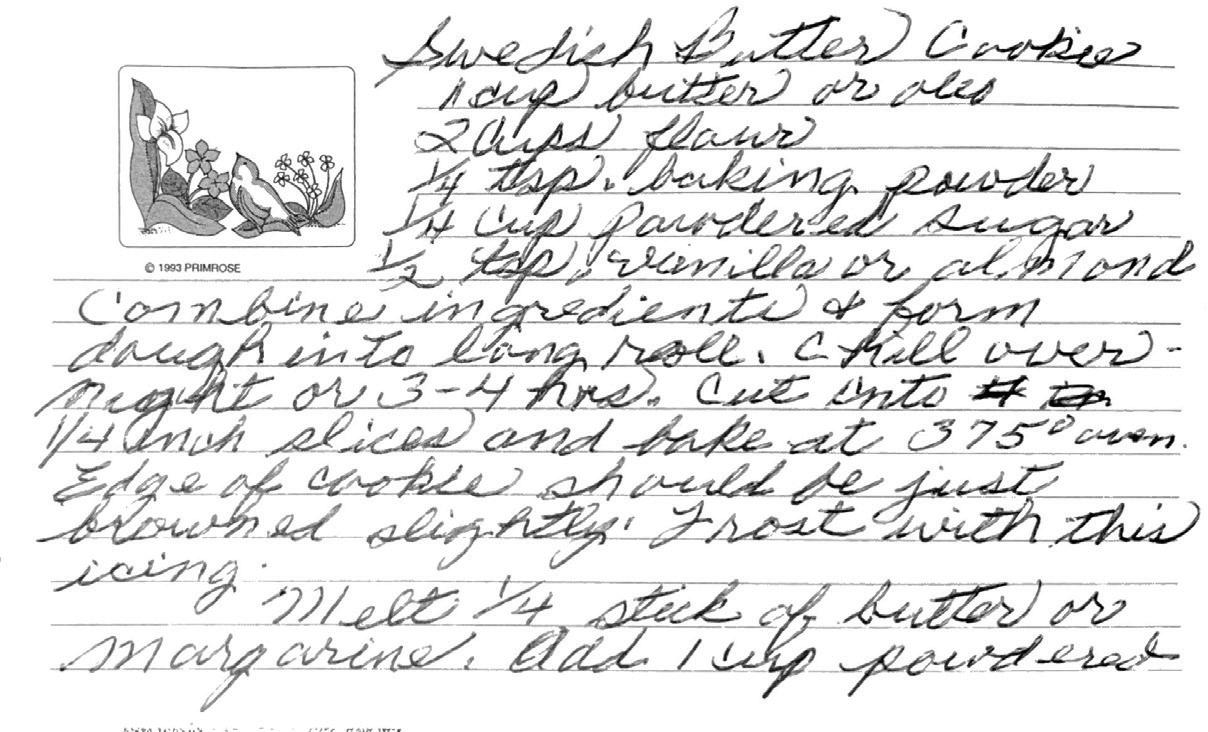 Swedish Butter Cookie
1 cup butter or oleo
2 Cups flour
1/4 tsp. baking powder
1/4 Cup Powdered sugar
1/2 tsp. vanilla or almond
© 1993 PRIMROSE
Combine ingredients & form
dough into long roll. Chill over-
night or 3-4 hrs. Cut into
1/4 inch slices and bake at 375° oven.
Edge of cookie should be just
browned slightly. Frost with this
icing.
Melt 1/4 stick of butter or
margarine. Add 1 cup powdered